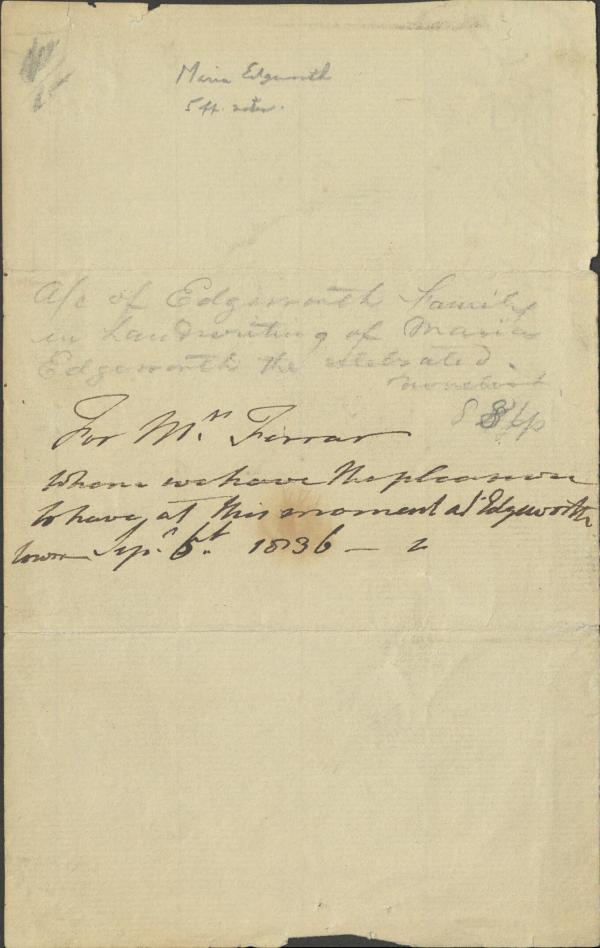 Maria Edgeworth
5 ff. notes.
A/c of Edgeworth Family
in handwriting of Maria
Edgeworth the celebrated
novelist
8 pp
For Mrs. Farrar
whom we have the pleasure
to have, at this moment at Edgeworth
town Sepr. 6t. 1836 —